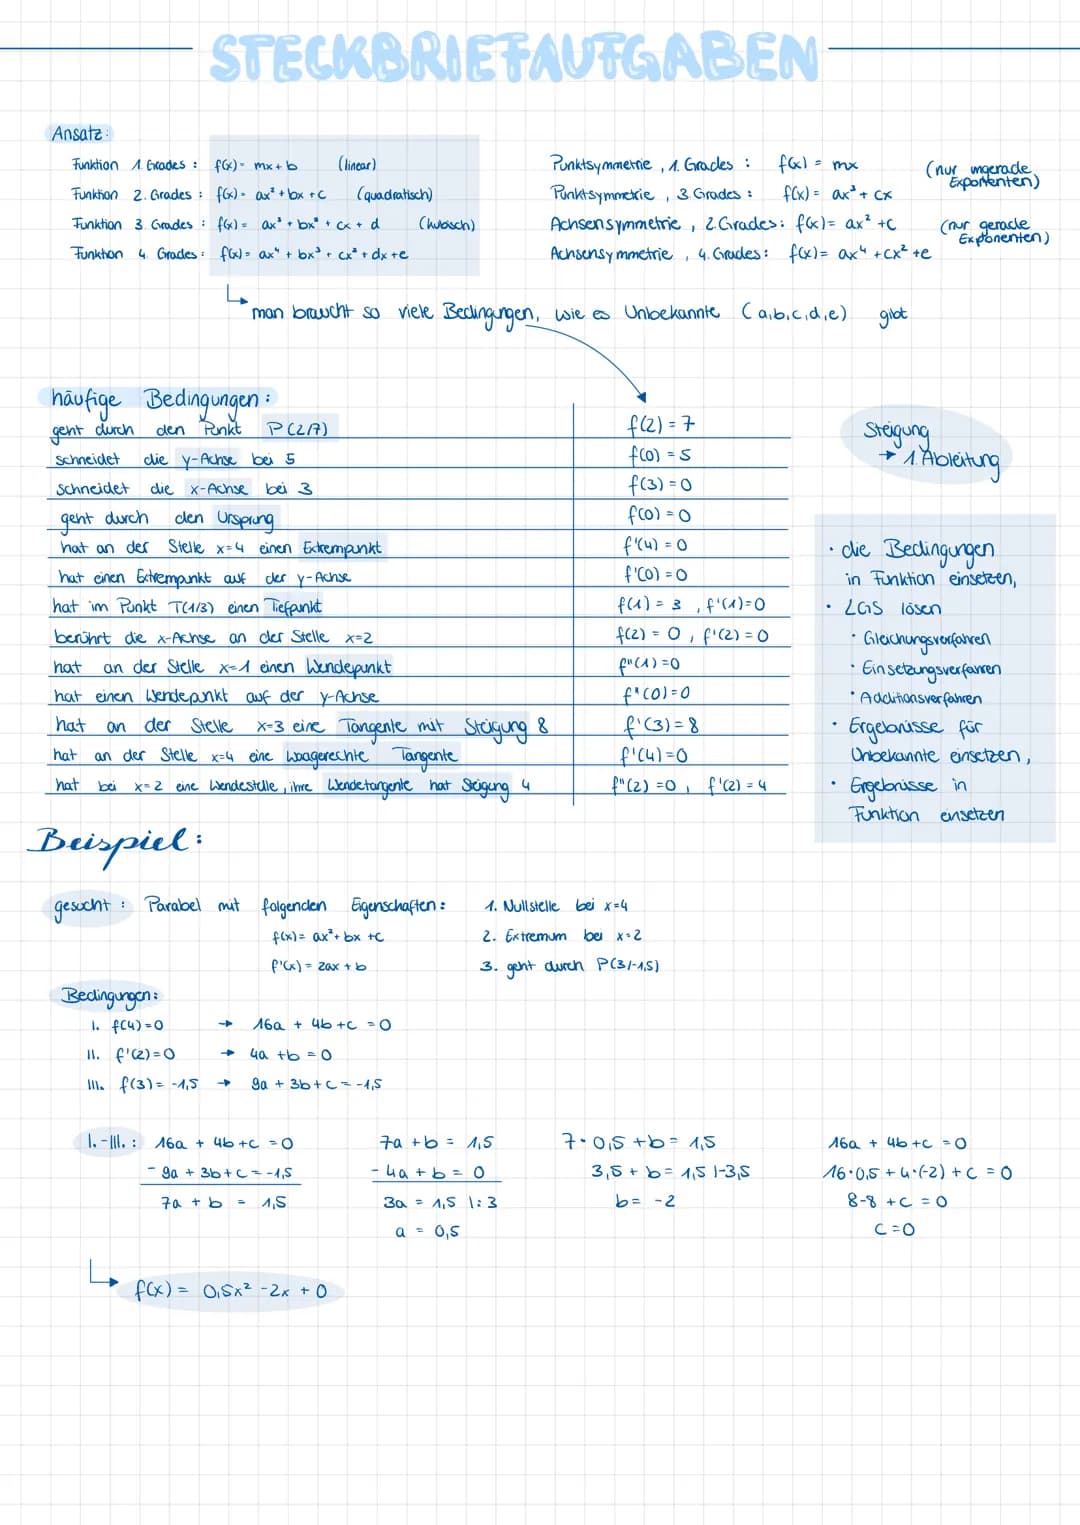 STECKBRIEFAUFGABEN
Ansatz:
Funktion 1. Grades : f(x) = mx + b (linear)
Funktion 2. Grades : f(x) = ax² + bx + c (quadratisch)
Funktion 3. Grades : f(x) = ax³ + bx² + cx + d (kubisch)
Funktion 4. Grades : f(x) = ax⁴ + bx³ + cx² + dx + e
Punktsymmetrie, 1. Grades : f(x) = mx (nur ungerade Exponenten)
Punktsymmetrie, 3. Grades : f(x) = ax³ + cx
Achsensymmetrie, 2. Grades : f(x) = ax² + c (nur gerade Exponenten)
Achsensymmetrie, 4. Grades : f(x) = ax⁴ + cx² + e
↳ man braucht so viele Bedingungen, wie es Unbekannte (a,b,c,d,e) gibt
häufige Bedingungen:
geht durch den Punkt P(2/7) f(2) = 7
schneidet die y-Achse bei 5 f(0) = 5
schneidet die x-Achse bei 3 f(3) = 0
geht durch den Ursprung f(0) = 0
hat an der Stelle x=4 einen Extrempunkt f'(4) = 0
hat einen Extrempunkt auf der y-Achse f'(0) = 0
hat im Punkt T(1/3) einen Tiefpunkt f(1) = 3, f'(1) = 0
berührt die x-Achse an der Stelle x=2 f(2) = 0, f'(2) = 0
hat an der Stelle x=1 einen Wendepunkt f''(1) = 0
hat einen Wendepunkt auf der y-Achse f''(0) = 0
hat an der Stelle x=3 eine Tangente mit Steigung 8 f'(3) = 8
hat an der Stelle x=4 eine waagerechte Tangente f'(4) = 0
hat bei x=2 eine Wendestelle, ihre Wendetangente hat Steigung 4 f''(2) = 0, f'(2) = 4
Steigung
→ 1. Ableitung
· die Bedingungen
in Funktion einsetzen,
· LGS lösen
· Gleichungsverfahren
· Einsetzungsverfahren
· Additionsverfahren
· Ergebnisse für
Unbekannte einsetzen,
· Ergebnisse in
Funktion einsetzen
Beispiel:
gesucht : Parabel mit folgenden Eigenschaften : 1. Nullstelle bei x=4
f(x) = ax² + bx + c 2. Extremum bei x=2
f'(x) = 2ax + b 3. geht durch P(3/-1,5)
Bedingungen:
I. f(4) = 0 → 16a + 4b + c = 0
II. f'(2) = 0 → 4a + b = 0
III. f(3) = -1,5 → 9a + 3b + c = -1,5
I.-III. : 16a + 4b + c = 0
- 9a + 3b + c = -1,5
7a + b = 1,5
7a + b = 1,5
- 4a + b = 0
3a = 1,5 |: 3
a = 0,5
7 · 0,5 + b = 1,5
3,5 + b = 1,5 |-3,5
b = -2
16a + 4b + c = 0
16·0,5 + 4·(-2) + c = 0
8-8 + c = 0
c = 0
↳ f(x) = 0,5x² - 2x + 0